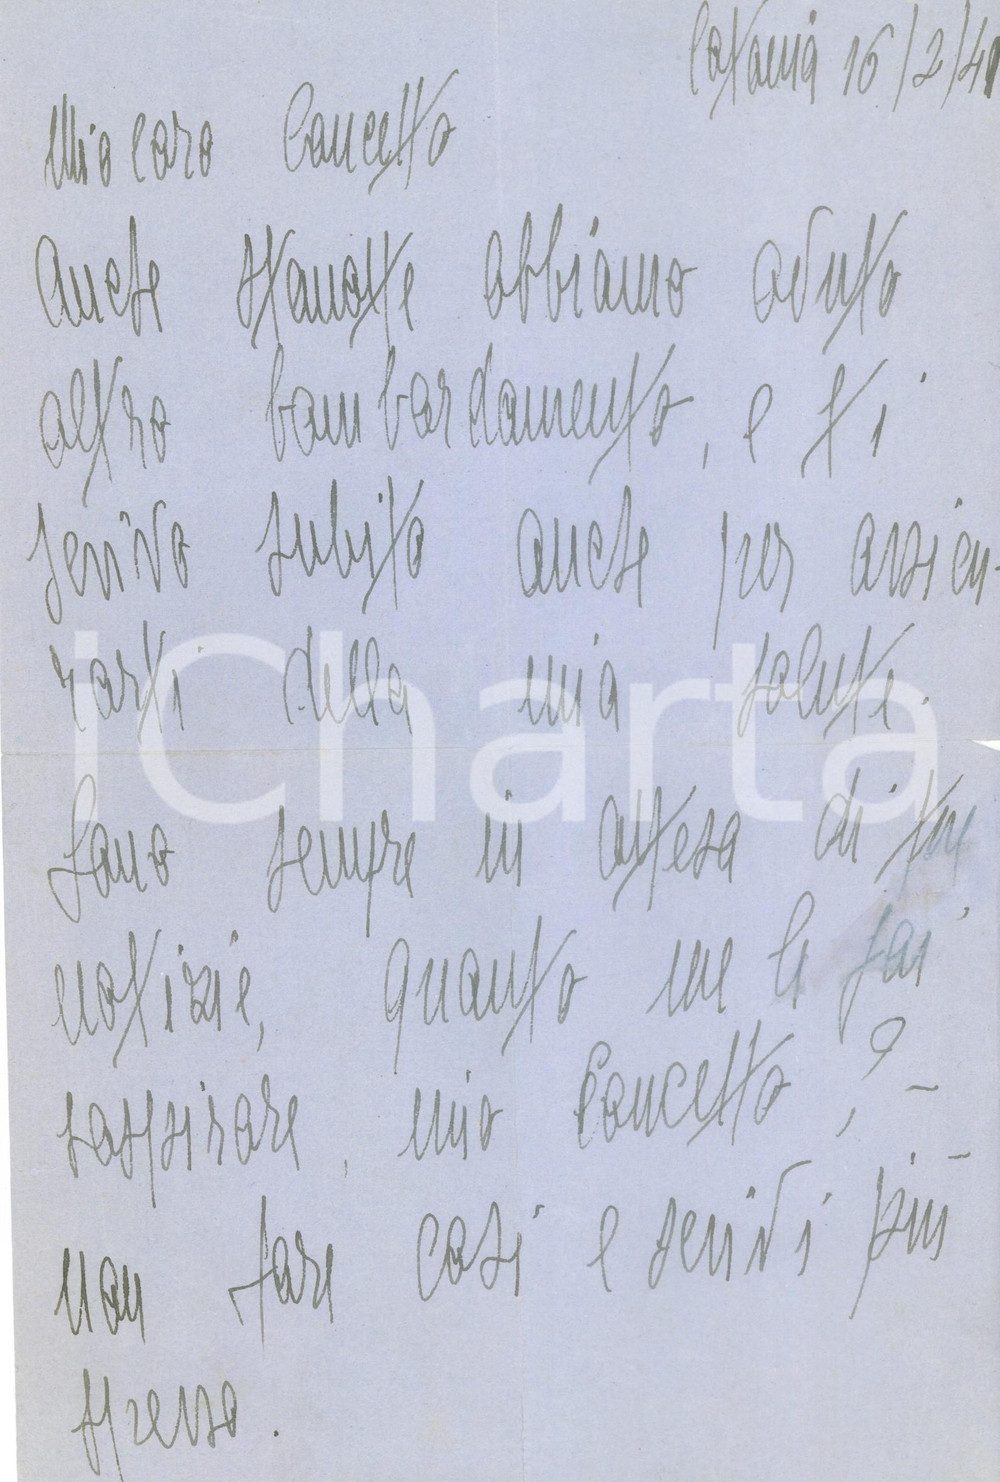 Catania 16/2/41
Mio caro Concetto
Anche stanotte abbiamo avuto
altro bombardamento, e ti
scrivo subito anche per assicu-
rarti della mia salute.
Sono sempre in attesa di tue
notizie, quanto me le fai
sospirare, mio Concetto?
non fare così e scrivi più
spesso.
iCharta